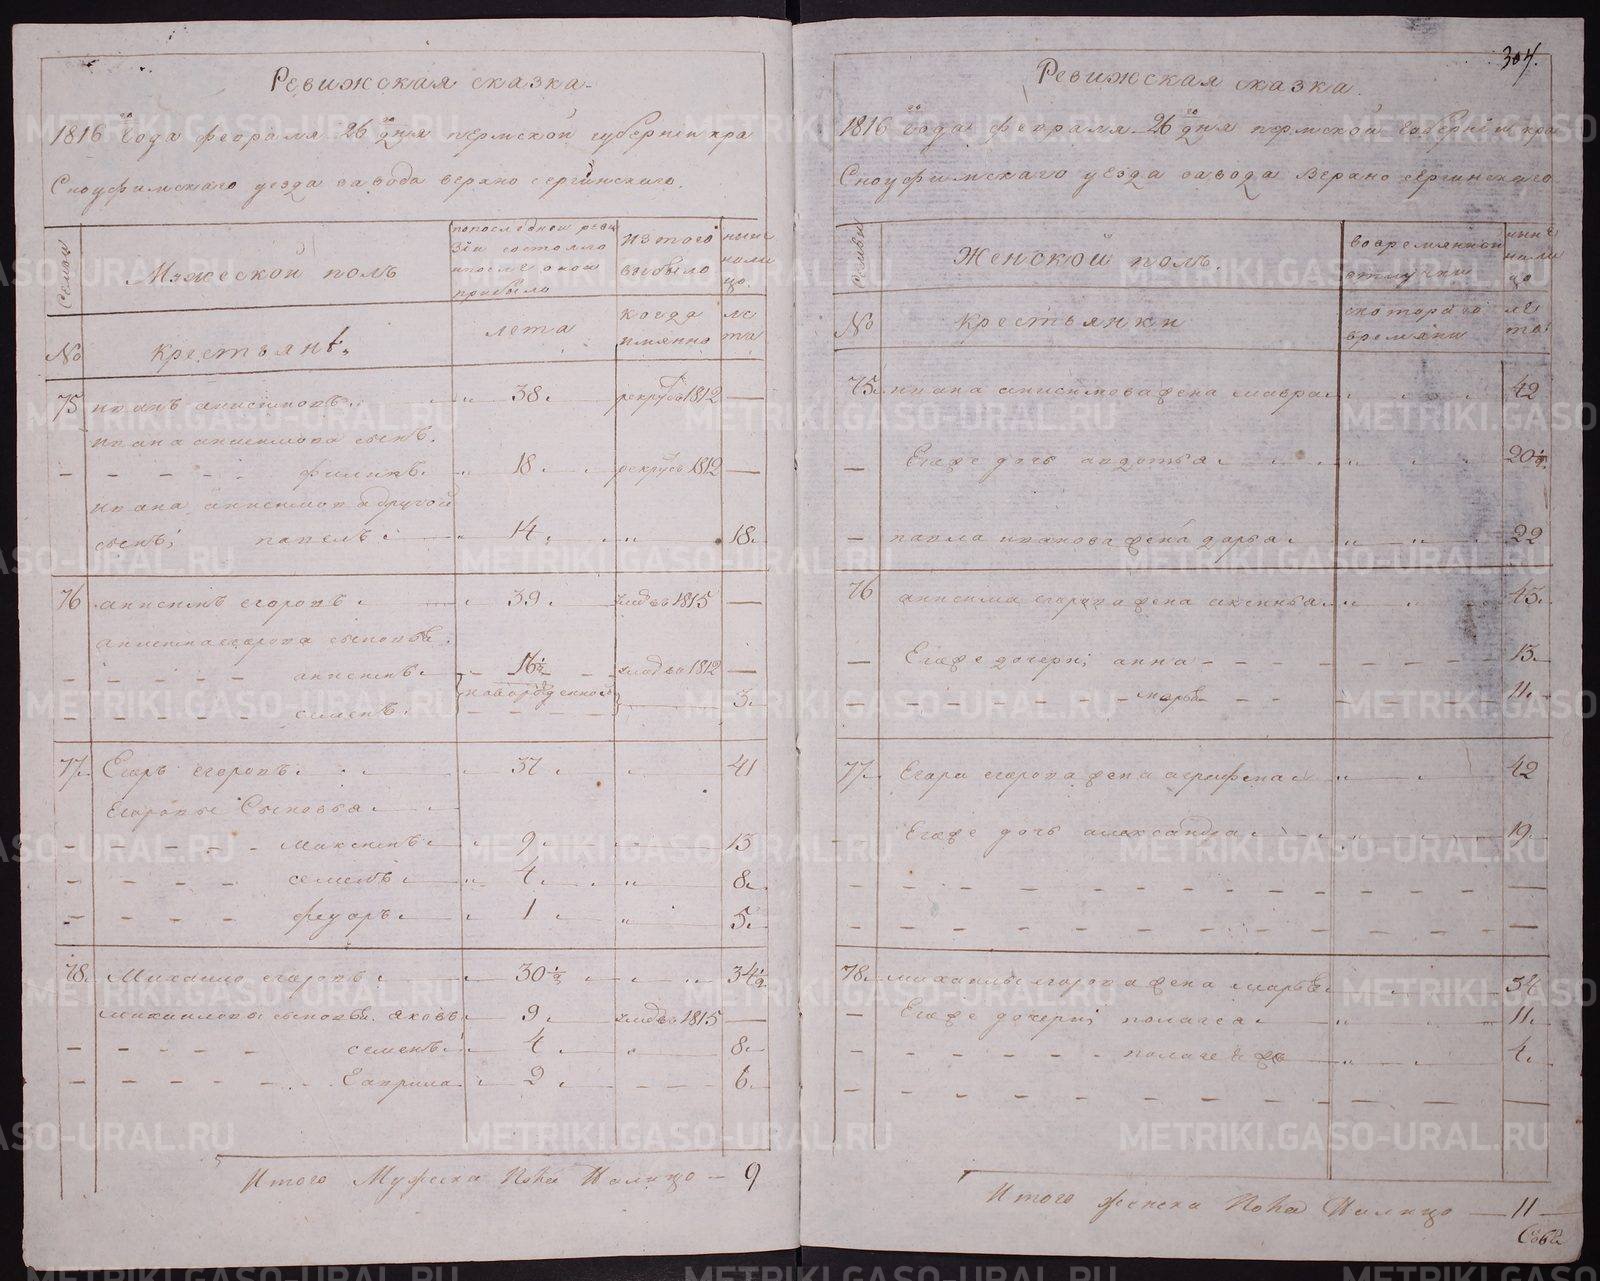 Ревижская сказка.
1816 го года февраля 26 го дня пермской губернии кра
Сноуфимскаго уезда завода верхно сергинскаго.
Семьи
Мужеской полъ
изтого
выбыло
ныне
нали
цо
№
крестьянъ
лета
когда
имянно
ле
та
75 иванъ анисимовъ 38 рекрутъ 1812 —
ивана анисимова сынъ
филипъ 18 рекрутъ 1812 —
ивана анисимова другой
сынъ; павелъ 14 18
76 анисимъ егоровъ 39 1815 —
анисима егорова сыновья
16 1/2 1812 —
новорожденной
семенъ 3
77 Егоръ егоровъ 37 41
Егоровы Сыновья
максимъ 9 13
семенъ 4 8
федоръ 1 5
78 Михайло егоровъ 30 1/2 34 1/2
михайловы сыновья яковъ 9 1815 —
семенъ 4 8
Гаврила 2 6
Итого Мужеска Пола Налицо — 9
304.
Ревижская сказка.
1816 го года февраля 26 го дня пермской губернии кра
Сноуфимскаго уезда завода Верхно сергинскаго
Семьи
Женской полъ.
вовременной
отлучки
ныне
нали
цо
№
крестьянки
скоторого
времяни
ле
та
75 ивана анисимова жена мавра 42
Егоже дочь авдотья 20 1/2
павла иванова жена дарья 22
76 анисима егорова жена аксинья 43
Егоже дочери; анна 13
марья 11
77 Егора егорова жена аграфена 42
Егоже дочь александра 19
78 михаилы егорова жена марья 34
Егоже дочери; 11
4
Итого женска Пола Налицо — 11
METRIKI.GASO-URAL.RU